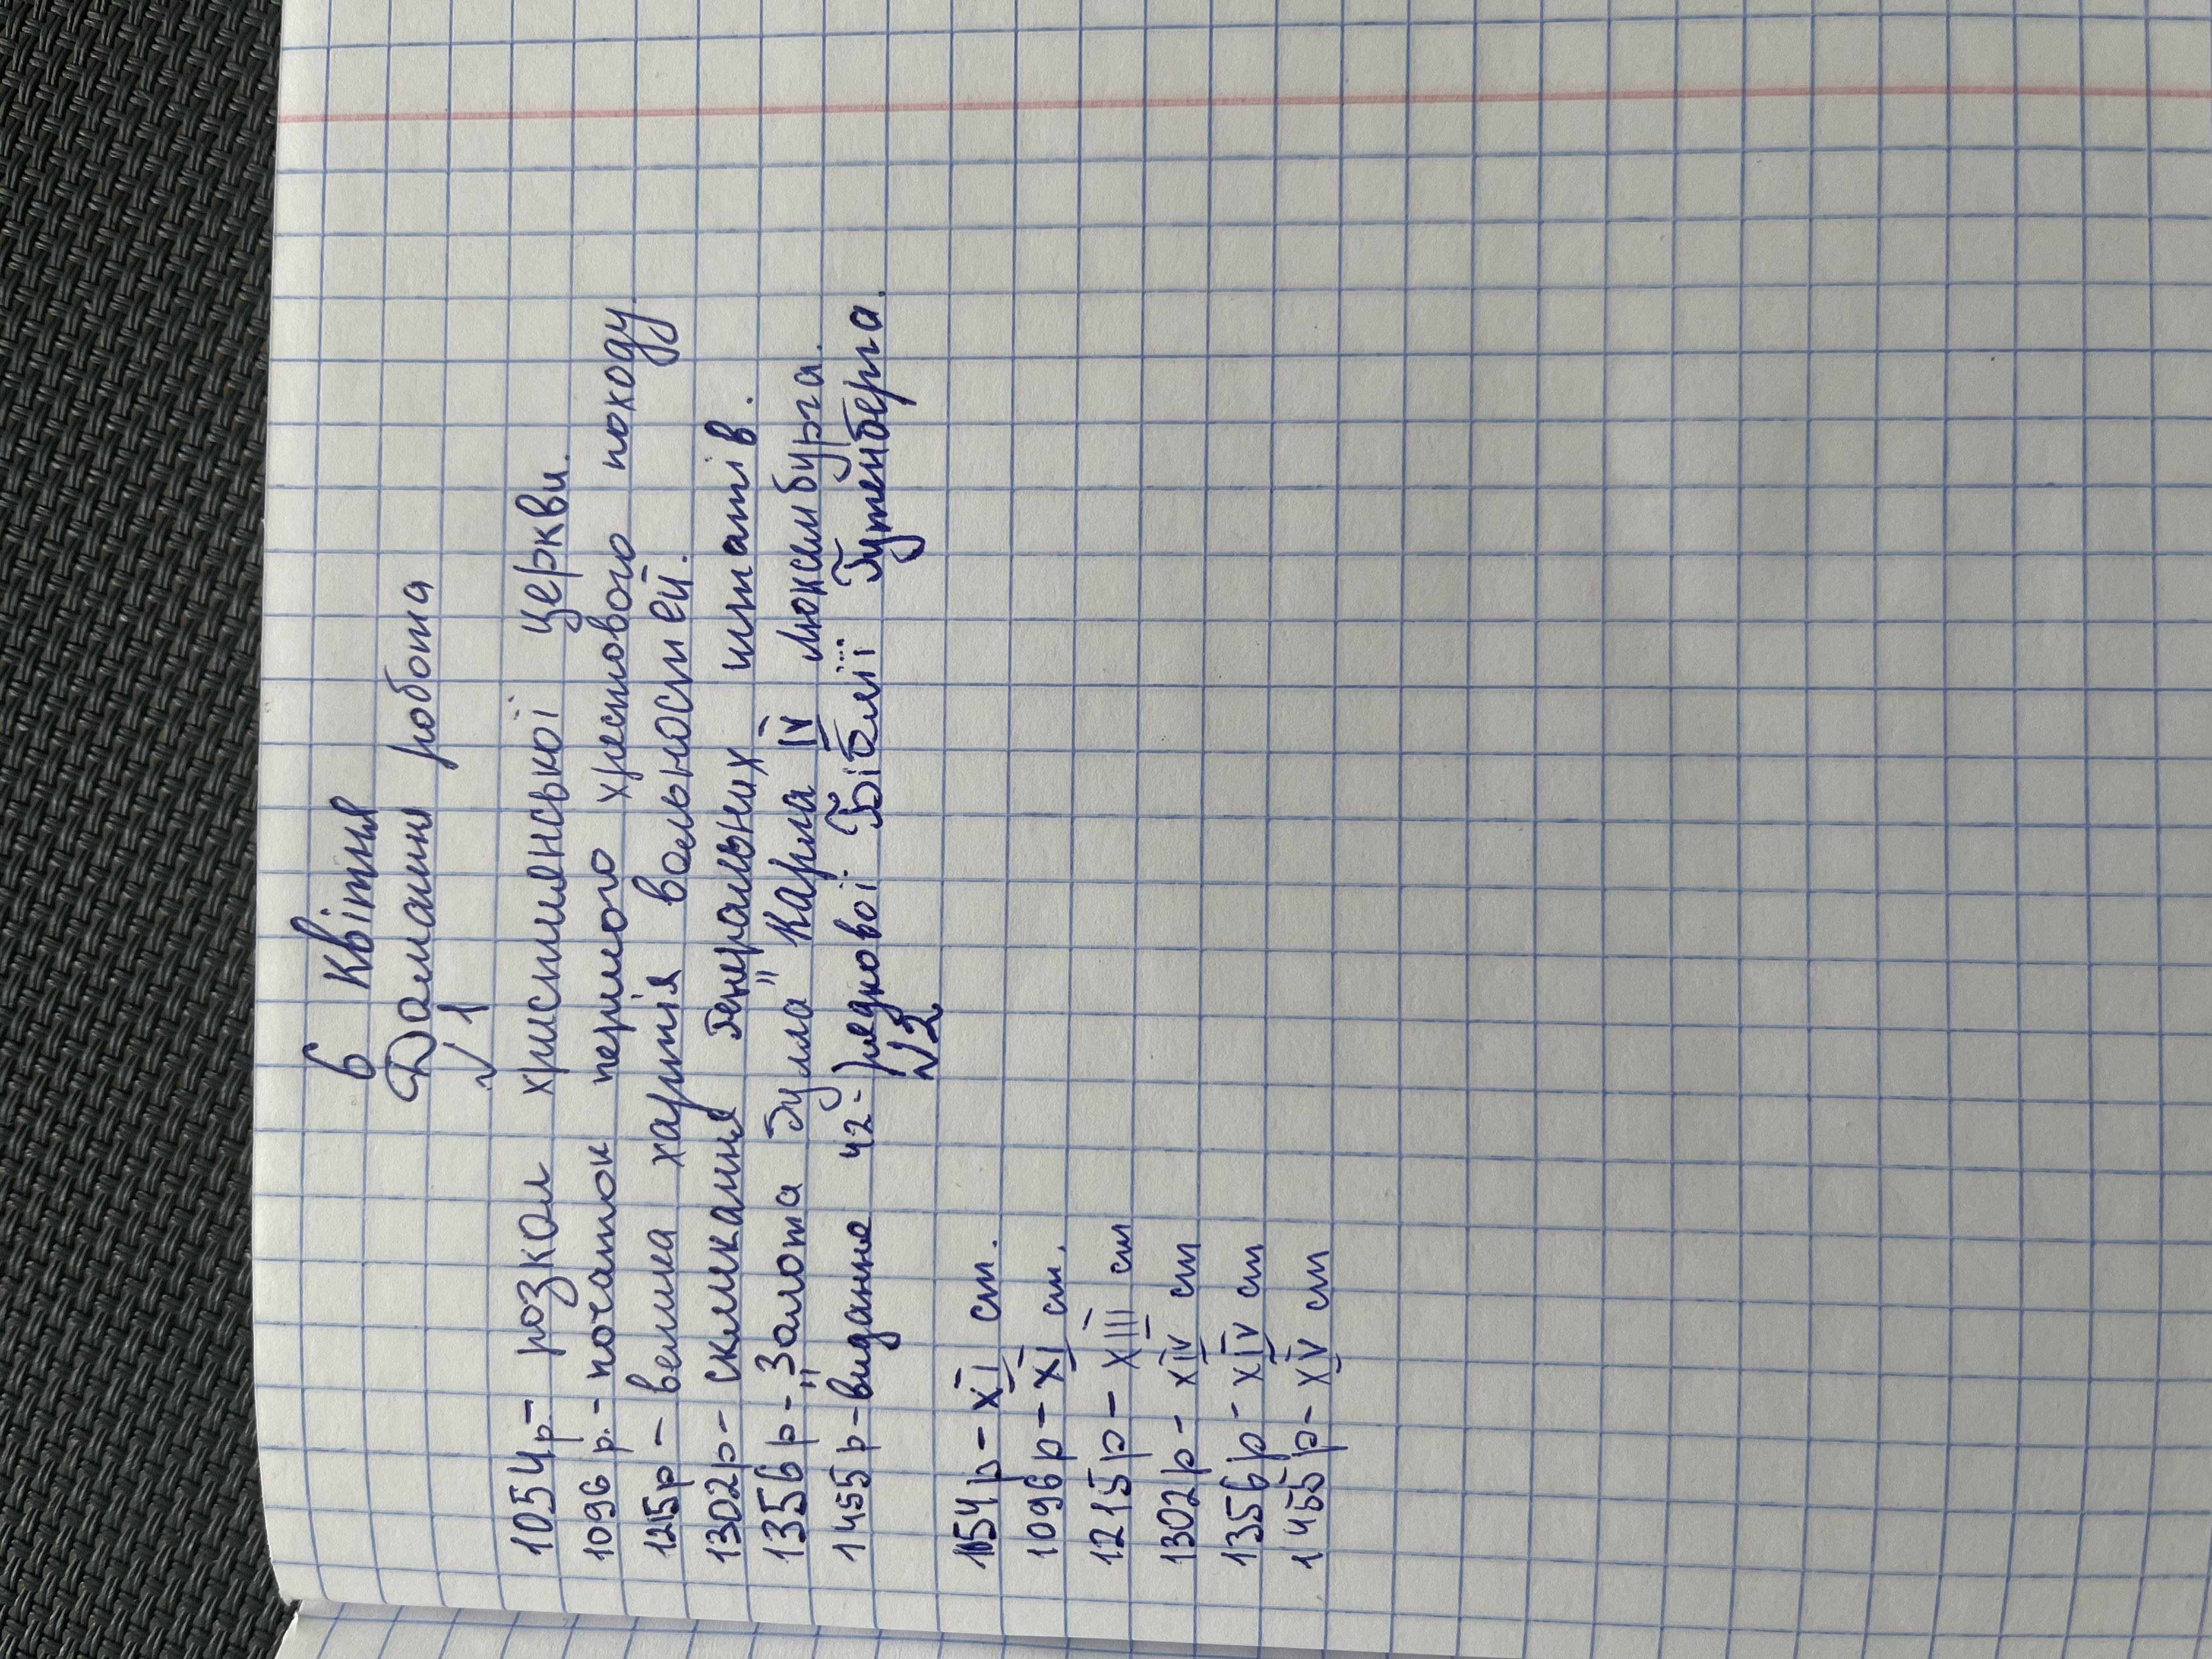 6 квітня
Домашня робота
√ 1
1054р- розкол християнської церкви.
1096 р.- початок першого хрестового походу.
1215р - велика хартія вольностей.
1302р- скликання Генеральних штатів.
1356 р- „Золота булла" Карла IV Люксембурга.
1455 р-видання 42-рядкової Біблії Гутенберга.
№2
1054 р - XI ст.
1096 р - XI ст.
1215 р - XIII ст
1302р- XIV ст
1356 р- XIV ст
1455 р- XV ст